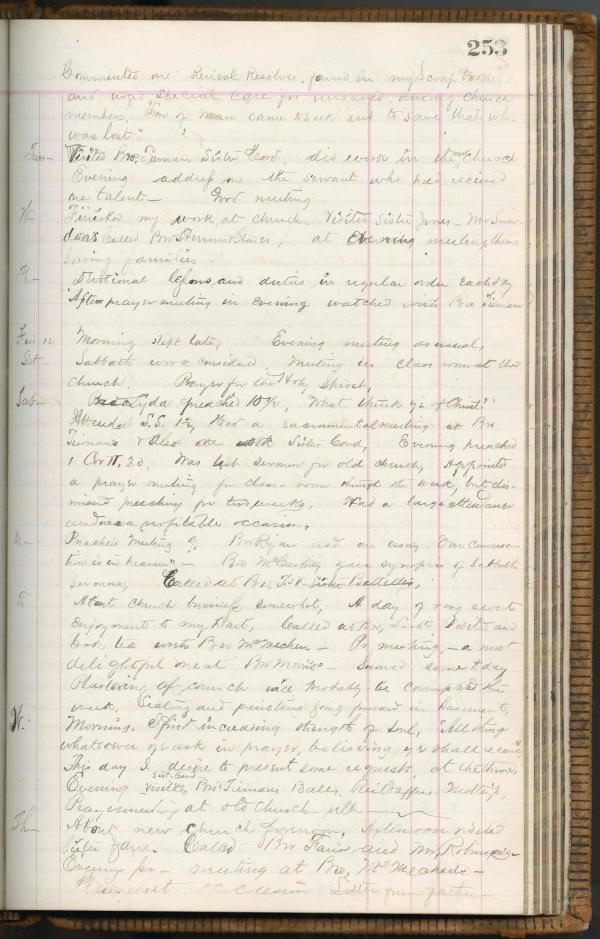 253
Commented on "Revival Resolves" found in my Scrap book"
and urged special care for unsaved among church
members, "Son of Man came to seek and to save that wh-
was lost"
Tues- Visited Bro. Tiernan Sister Cord, did work in the new church
Evening address on the servant who had received
one talent- Good meeting.
W- Finished my work at church Visited Sister Jones- Mr Snow-
dons called Bro's , at evening meeting, theme
saving families-
Th- Devotional lessons and duties in regular order each day
After prayer meeting in evening watched with Bro Tiernan
Fri 12 Morning slept late, Evening meeting as usual,
Sat- Sabbath work considered. Meeting in class room at the
church. Prayer for the Holy Spirit,
Sab- preached 10½, "What think ye of Christ"
Attended S.S. 1½, Had a sacramental meeting at Bro
Tiernans & also Sister Cord, Evening preached
1 Cor 11, 20, Was last sermon for old church, Appointed
a prayer meeting for class-room through the week, but dis-
missed preaching for two weeks. Had a large attendance
and was a profitable occasion,
M- Preachers Meeting 9 Bro Ryan read an essay "Our conversa-
tion is in heaven"- Bro McCarthy gave synopsis of Sabbath
sermons, Called at Bro,
T About church business somewhat, A day of very sweet
Enjoyment to my heart, Called at Bro, and
took tea with Bro McMechen- Pr meeting,- a most
delightful one at Bro Morris- some day
Plastering of church will probably be completed this
week, Seating and painting going forward in basement,
W: Morning. I find increasing strength of soul, "All things
whatsoever ye ask in prayer, believing ye shall receive",
This day I desire to present some requests, at the throne
Sist. Cord
Evening visited, Bro Tiernans Bales,
Prayer meeting at old church
Th- About new church forenoon, Afternoon visited
Sister Jane. Called Bro Faris and Mr, Robinson-
Evening pr- meeting at Bro, McMechens-
Letter from father-